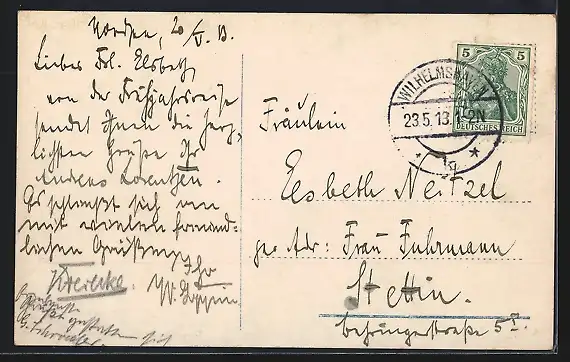 Norden, 20/V. 13.
Liebes Frl. Elsbeth,
von der Frühjahrsreise
sendet Ihnen die herz-
lichsten Grüße Ihr
Andreas Lorentzen.
Es schließt sich an
mit vielen freund-
lichen Grüßen
Ihr
W.
Kreienka.
gestatten sich
WILHELMSHAVEN
23.5.13.1-2N
5 5
DEUTSCHES REICH
Fräulein
Elsbeth Neitzel
per Adr: Frau Fuhrmann
Stettin.
Behringerstraße 5 I.